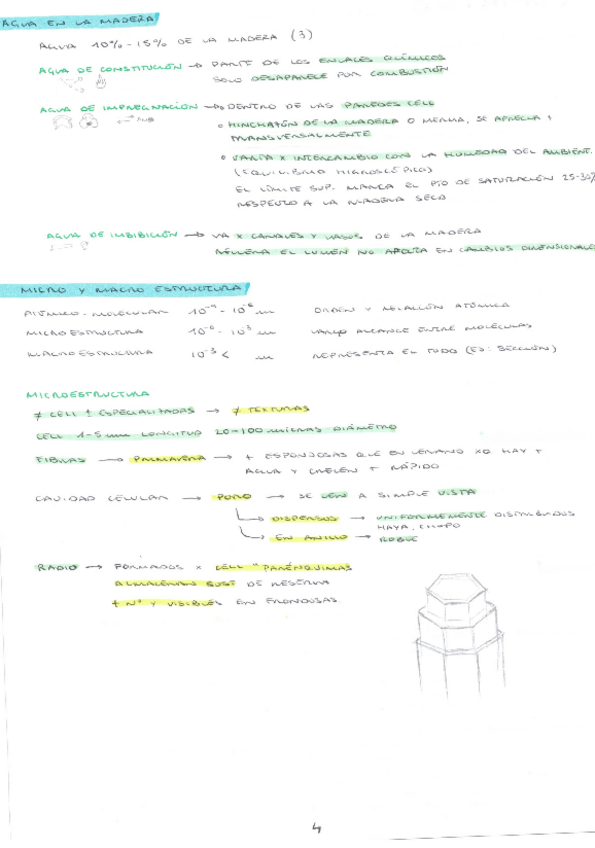 AGUA EN LA MADERA
AGUA 10%-15% DE LA MADERA (3)
AGUA DE CONSTITUCIÓN → PARTE DE LOS ENLACES QUÍMICOS
SOLO DESAPARECE POR COMBUSTIÓN
AGUA DE IMPREGNACIÓN → DENTRO DE LAS PAREDES CELL
HINCHAZÓN DE LA MADERA O MERMA, SE APRECIA +
TRANSVERSALMENTE
VARÍA X INTERCAMBIO CON LA HUMEDAD DEL AMBIENT.
(EQUILIBRIO HIGROSCÓPICO)
EL LÍMITE SUP. MARCA EL PTO DE SATURACIÓN 25-30%
RESPECTO A LA MADERA SECA
AGUA DE IMBIBICIÓN → VA X CANALES Y VASOS DE LA MADERA
RELLENA EL LUMEN NO AFECTA EN CAMBIOS DIMENSIONALES
MICRO Y MACRO ESTRUCTURA
ATÓMICO-MOLECULAR ORDEN Y RELACIÓN ATÓMICA
MICROESTRUCTURA LARGO ALCANCE ENTRE MOLÉCULAS
MACROESTRUCTURA 10⁻³ < m REPRESENTA EL TODO (EJ: SECCIÓN)
MICROESTRUCTURA
≠ CELL + ESPECIALIZADAS → ≠ TEXTURAS
CELL 1-5 mm LONGITUD 20-100 MICRAS DIÁMETRO
FIBRAS → PRIMAVERA → + ESPONJOSAS QUE EN VERANO XQ HAY +
AGUA Y CRECEN + RÁPIDO
CAVIDAD CELULAR → PORO → SE VEN A SIMPLE VISTA
DISPERSOS → UNIFORMEMENTE DISTRIBUIDOS
HAYA, CHOPO
EN ANILLO → ROBLE
RADIO → FORMADOS X CELL "PARÉNQUIMAS
ALMACENAN SUST DE RESERVA
+ Nº Y VISIBLES EN FRONDOSAS.
4